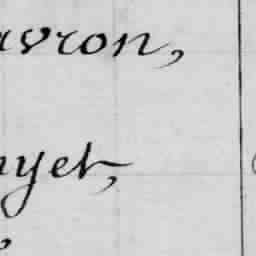 avron,
nyet,